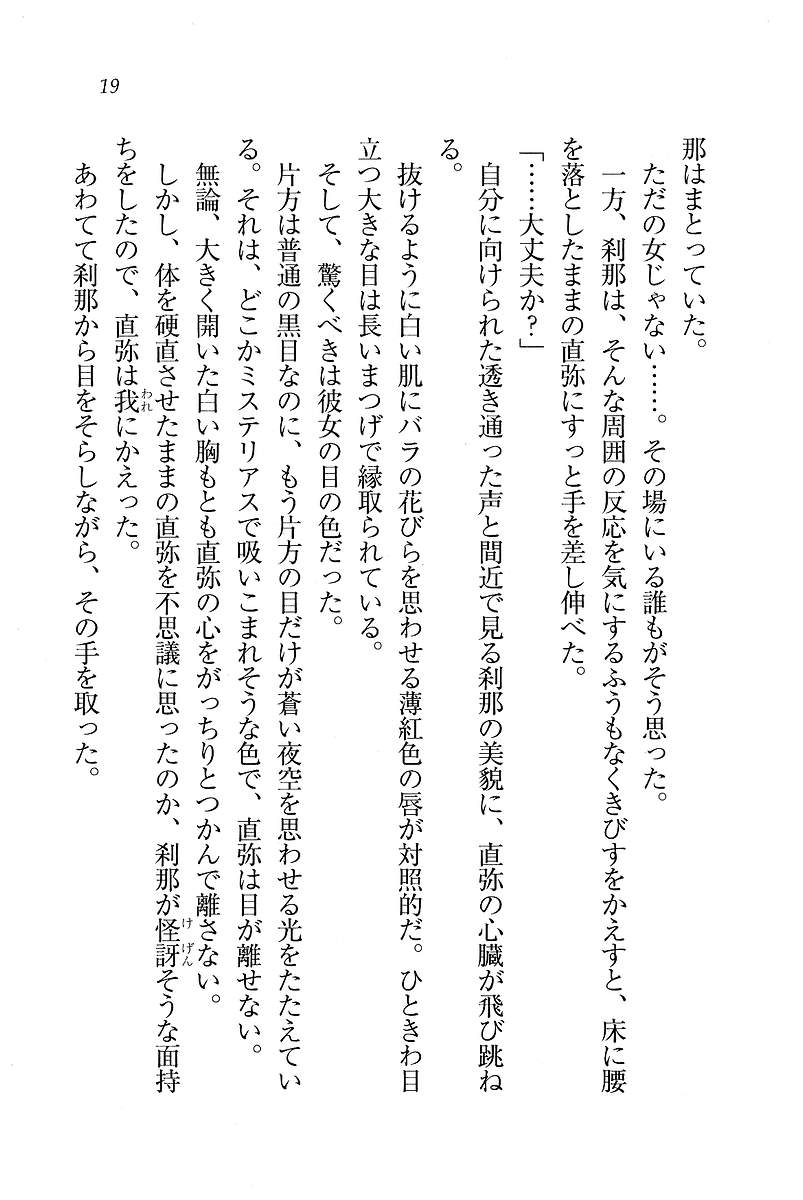 19
那はまとっていた。
ただの女じゃない……。その場にいる誰もがそう思った。
一方、刹那は、そんな周囲の反応を気にするふうもなくきびすをかえすと、床に腰
を落としたままの直弥にすっと手を差し伸べた。
「……大丈夫か?」
自分に向けられた透き通った声と間近で見る刹那の美貌に、直弥の心臓が飛び跳ね
る。
抜けるように白い肌にバラの花びらを思わせる薄紅色の唇が対照的だ。ひときわ目
立つ大きな目は長いまつげで縁取られている。
そして、驚くべきは彼女の目の色だった。
片方は普通の黒目なのに、もう片方の目だけが蒼い夜空を思わせる光をたたえてい
る。それは、どこかミステリアスで吸いこまれそうな色で、直弥は目が離せない。
無論、大きく開いた白い胸もとも直弥の心をがっちりとつかんで離さない。
しかし、体を硬直させたままの直弥を不思議に思ったのか、刹那が怪訝そうな面持
ちをしたので、直弥は我にかえった。
あわてて刹那から目をそらしながら、その手を取った。